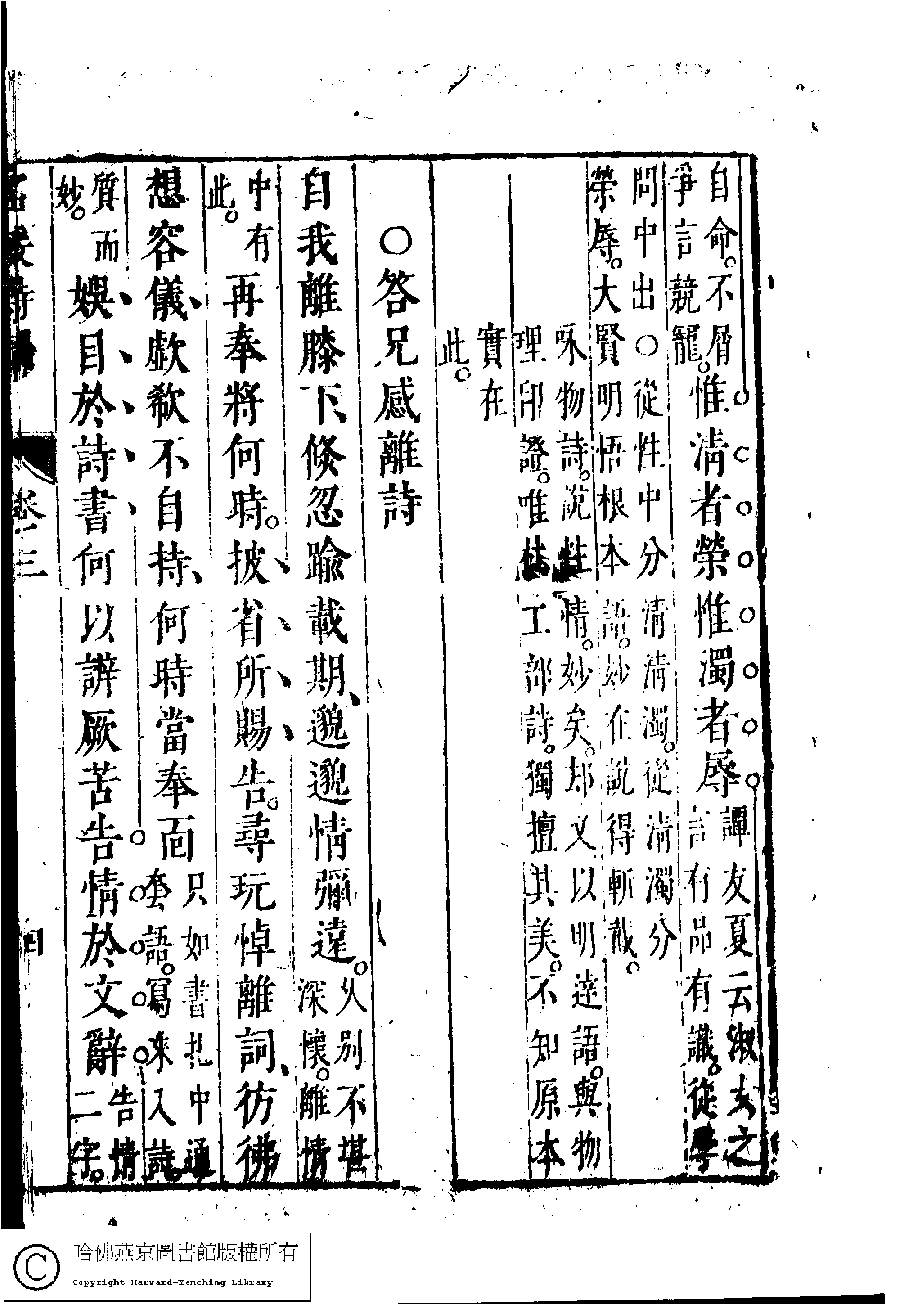 自命。不屑
爭言競寵。
惟清者榮惟濁者辱
譚友夏云淑女之
言有品有識。從學
問中出○從性中分清清濁。從清濁分
榮辱。大賢明悟根本語。妙在說得斬截。
咏物詩。說性情。妙矣。却又以明達語。與物
理印證。唯杜工部詩。獨擅其美。不知原本
實在
此。
○答兄感離詩
自我離膝下、倏忽踰載期、邈邈情彌遠。
久別不堪
深懷。離情
中有
此。
再奉將何時。披省所賜告。尋玩悼離詞、彷彿
想容儀、歔欷不自持、何時當奉面
只如書札中通
套語。寫來入詩。
質而
妙。
娛目於詩書何以訴厥苦告情於文辭
告情
二字。
名媛詩歸
卷三
四
哈佛燕京圖書館版權所有
Copyright Harvard-Yenching Library